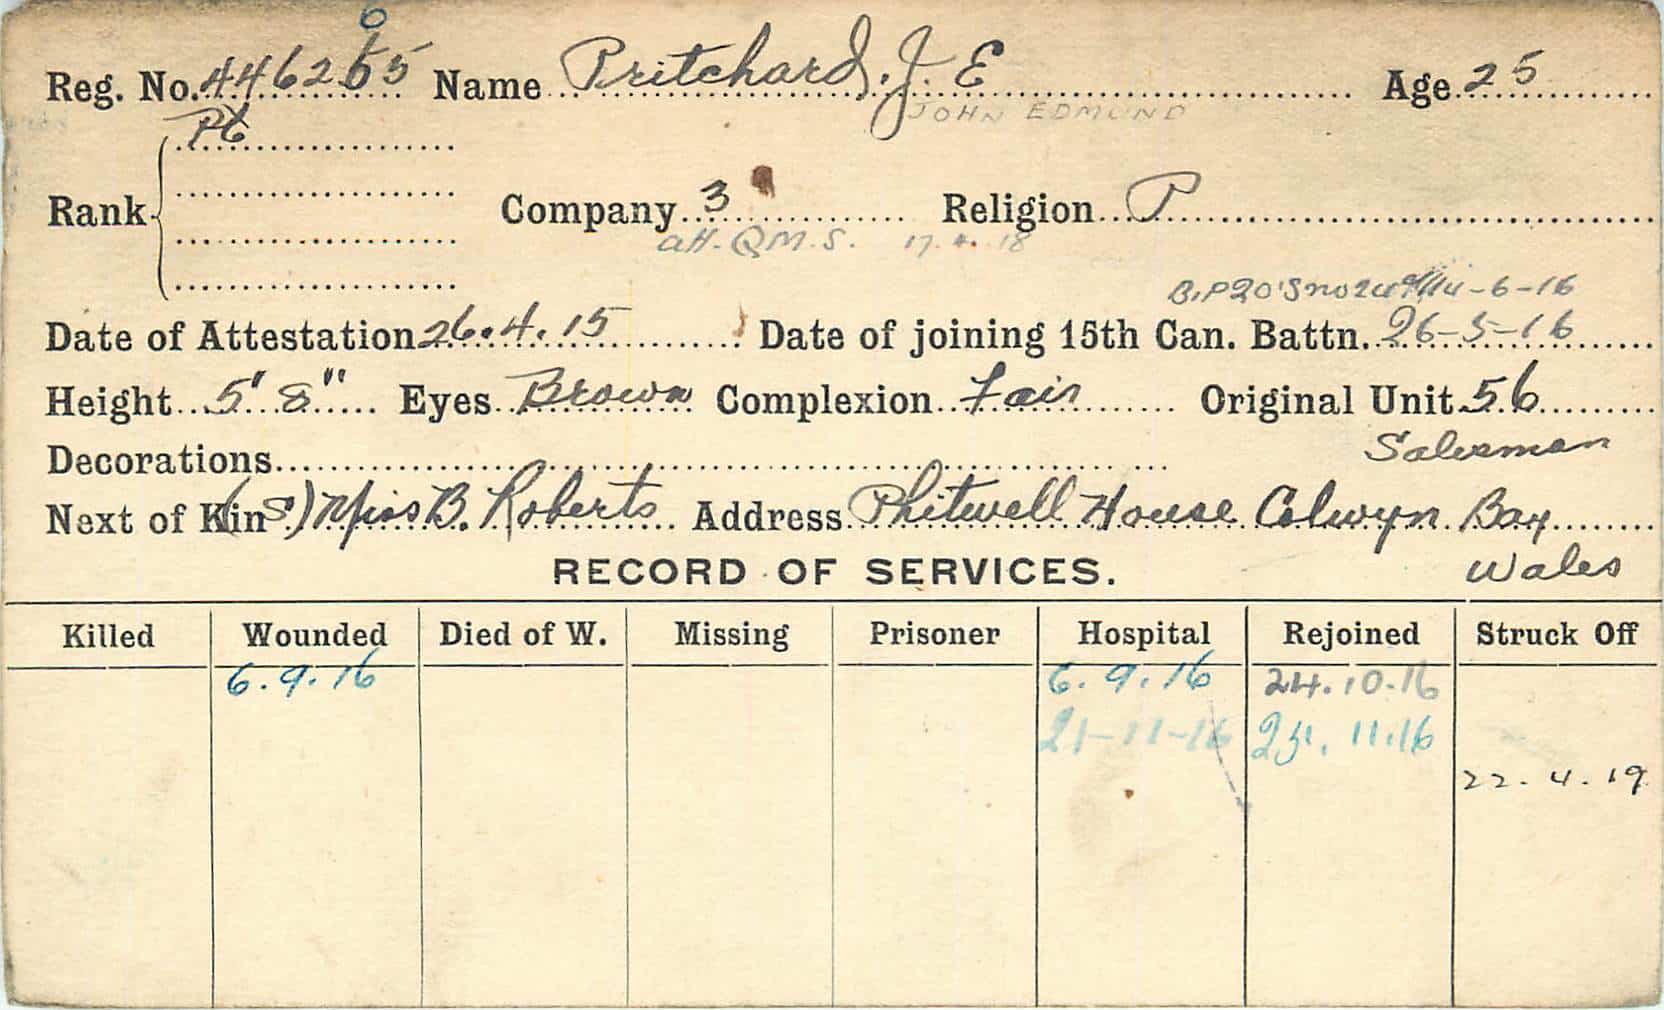 Reg. No. 446265 Name Pritchard, J. E Age 25
JOHN EDMUND
Pt
Rank Company 3 Religion P
att. Q.M.S. 17.4.18
14-6-16
Date of Attestation 26.4.15 Date of joining 15th Can. Battn. 26-5-16
Height 5' 8" Eyes Brown Complexion Fair Original Unit 56
Decorations Salesman
Next of Kin (S) Miss B. Roberts Address Phitwell House Colwyn Bay
Wales
RECORD OF SERVICES.
Killed Wounded Died of W. Missing Prisoner Hospital Rejoined Struck Off
6.9.16 6.9.16 24.10.16
21-11-16 25.11.16
22.4.19